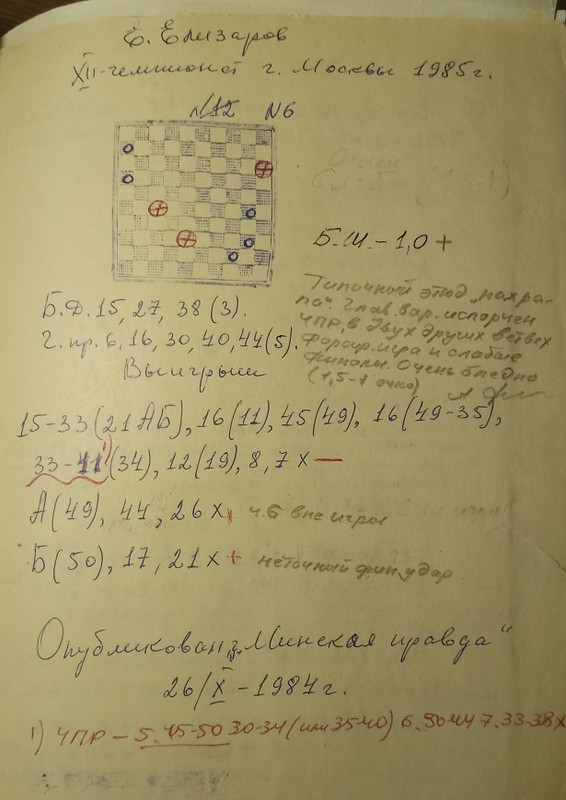 Е. Елизаров
XII-чемпионат г. Москвы 1985г.
N12 N6
Б.Ш. – 1,0 +
Типичный этюд „махра-
па". Глав. вар. испорчен
ЧПР, в двух других ветвях
форсир. игра и слабые
финалы. Очень бледно
(1,5-1 очко)
Б.Д. 15, 27, 38 (3).
Ч. пр. 6, 16, 30, 40, 44 (5).
Выигрыш
15-33 (21АБ), 16 (11), 45 (49), 16 (49-35),
33-11¹⁾ (34), 12 (19), 8, 7 х –
А (49), 44, 26 х, ч. 6 вне игры
Б (50), 17, 21 х + неточный фин. удар
Опубликован „Минская правда"
26/X – 1984 г.
1) ЧПР – 5. 45-50 30-34 (или 35-40) 6. 50-44 7. 33-38 х